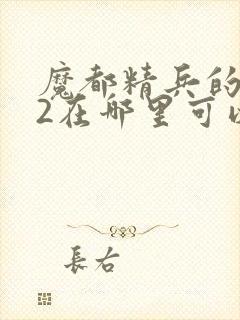 魔都精兵的
2在哪里可以
長右